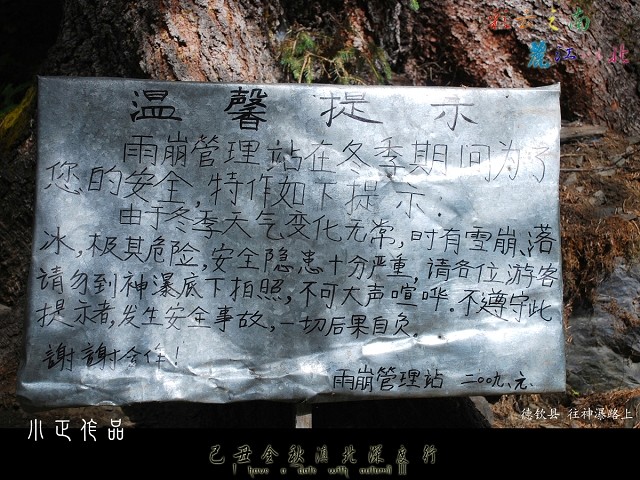 彩云之南
麗江以北
温馨提示
雨崩管理站在冬季期间为了
您的安全,特作如下提示:
由于冬季天气变化无常,时有雪崩、落
冰,极其危险,安全隐患十分严重,请各位游客
请勿到神瀑底下拍照,不可大声喧哗。不遵守此
提示者,发生安全事故,一切后果自负。
謝謝合作!
雨崩管理站 二00九.元.
德钦县 往神瀑路上
小正作品
己丑金秋滇北深度行
I have a date with autumn III